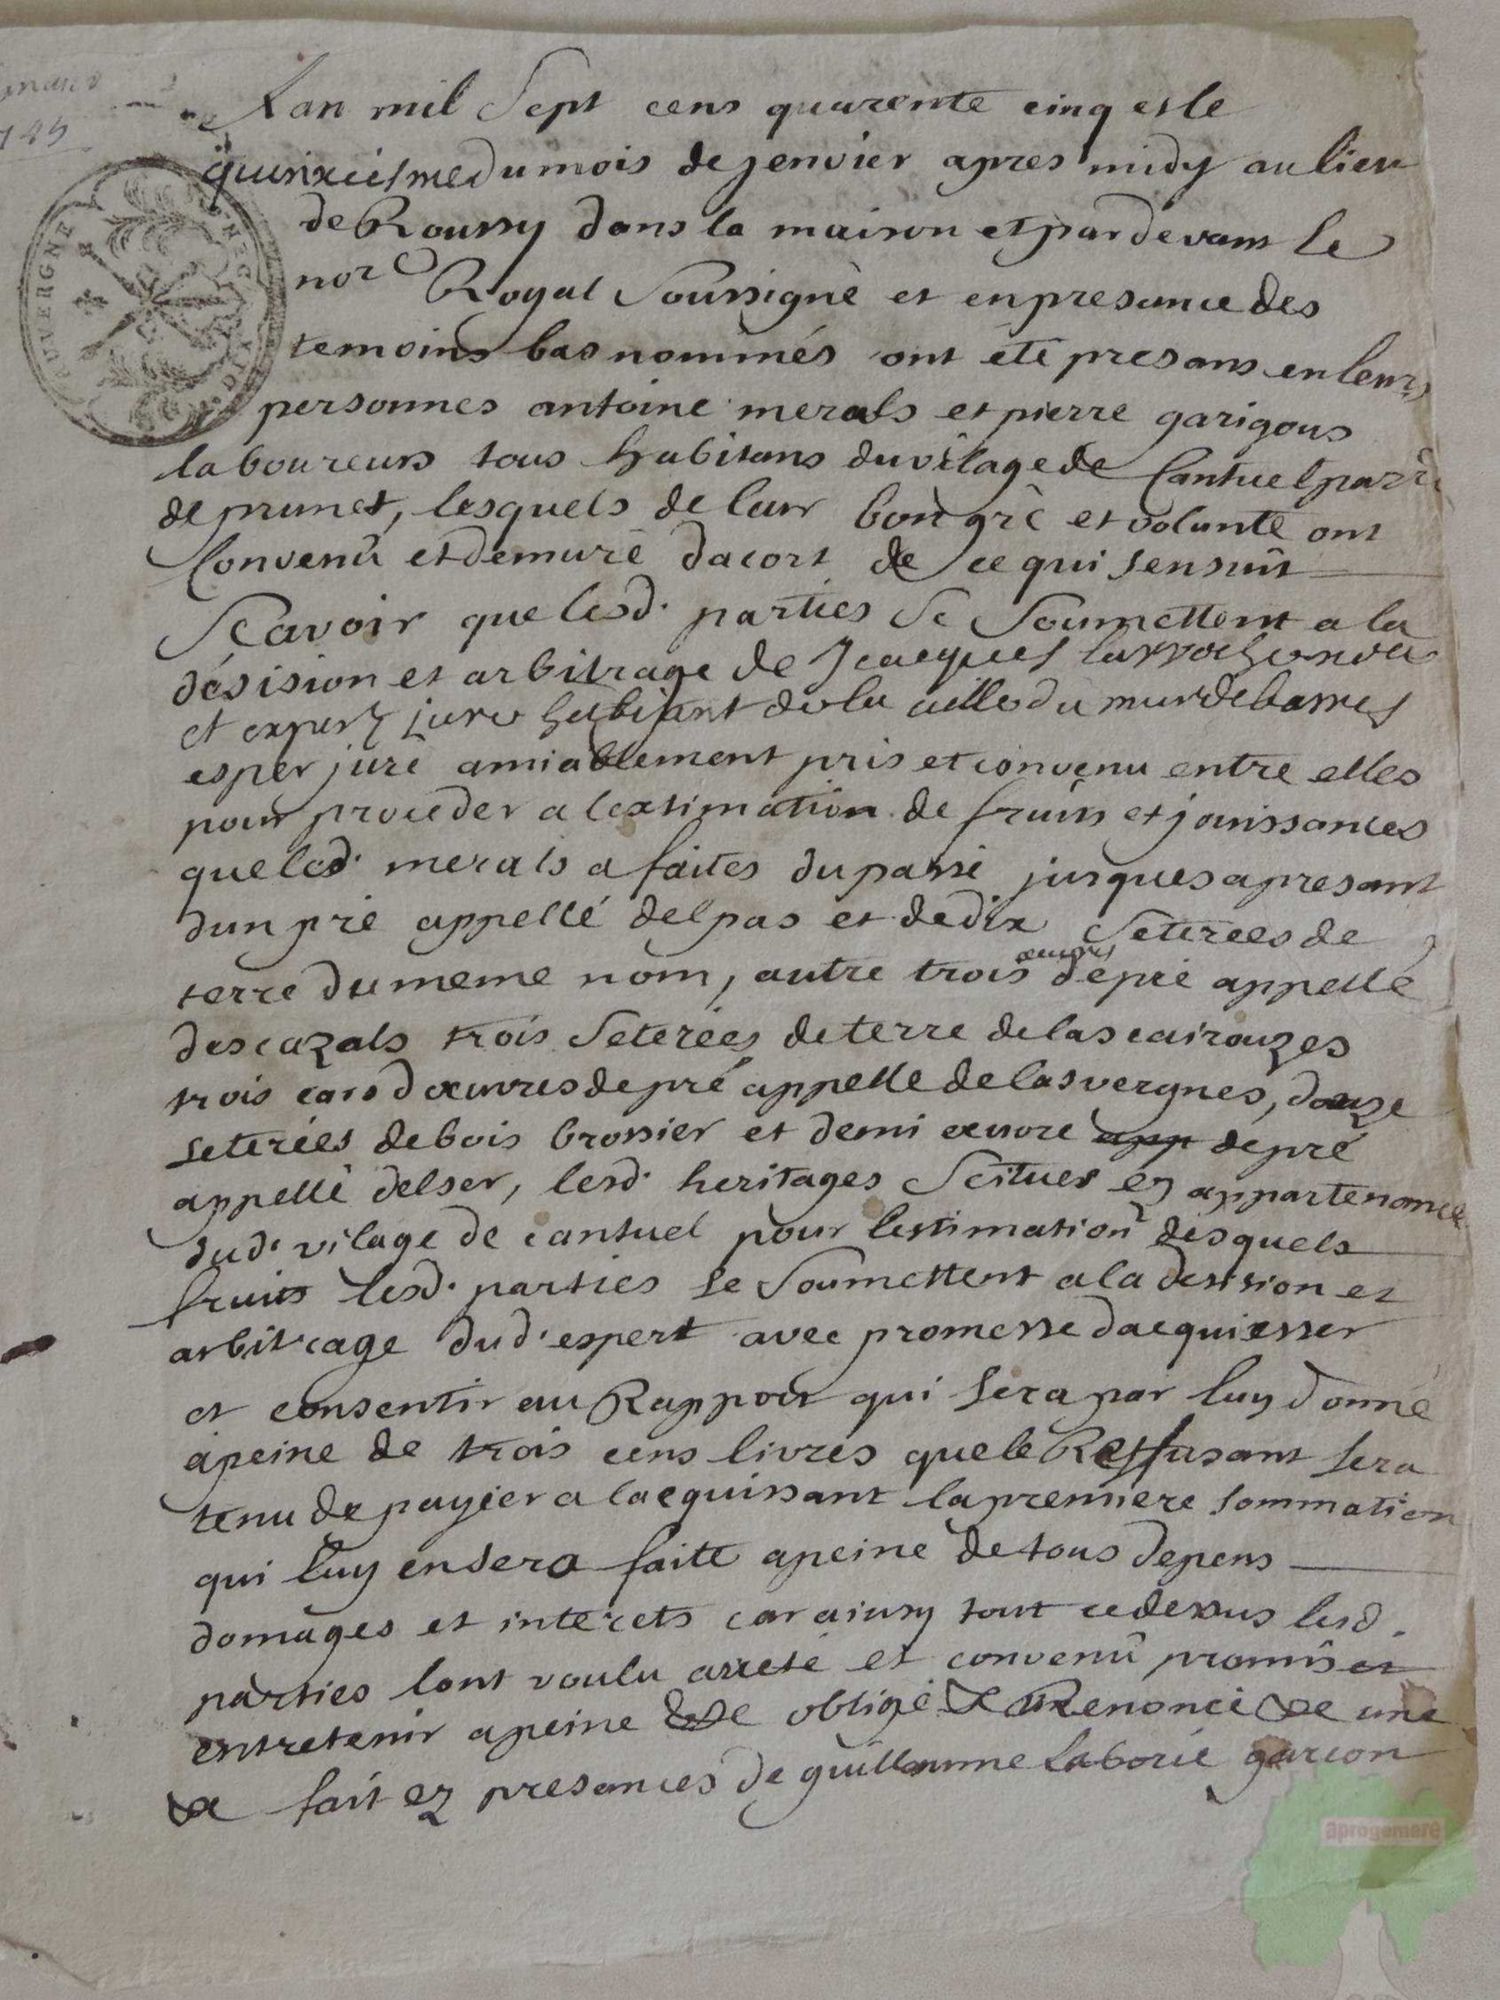 Lan mil Sept cens quarente cinq et le
quinziesme du mois de jenvier apres midy au lieu
de Roussy dans la maison et pardevant le
nore Royal Soussigné et en presance des
temoins bas nommés ont été presans en leurs
personnes antoine merals et pierre garigous
laboureurs tous habitans du vilage de Cantuel parr
de prunet, lesquels de leur bon gré et volunté ont
Convenu et demuré dacort de ce qui sensuit
Scavoir que lesd. parties se Soumettent a la
désision et arbitrage de Jeacques
et expert juré habitant de la ville du mur de barres
esper juré amiablement pris et convenu entre elles
pour proceder a lextimation de fruits et jouissances
que led. merals a faites du passé jusques apresant
dun pré appellé delpas et de dix Seterées de
terre du meme nom, autre trois œuvres de pré appellé
des cazals trois Seterées de terre de las cairouzes
trois cars dœuvres de pré appellé de las vergnes, douze
seterées de bois brossier et demi œuvre app de pré
appellé delser, lesd. heritages Scitues en appartenance
dud. vilage de cantuel pour lestimation desquels
fruits lesd. parties se Soumettent a la desision et
arbitrage dud. espert avec promesse dacquiesser
et consentir au Rapport qui sera par luy donné
a peine de trois cens livres que le Reffusant sera
tenu de payier a lacquissant la premiere sommation
qui luy en sera faite a peine de tous depens
domages et interets car ainsy tout ce dessus lesd.
parties lont voulu arreté et convenu promis et
entretenir a peine &c obligé &c Renoncé &c une
&c fait ez presances de guillaume Laborie garcon
AUVERGNE
aprogemere